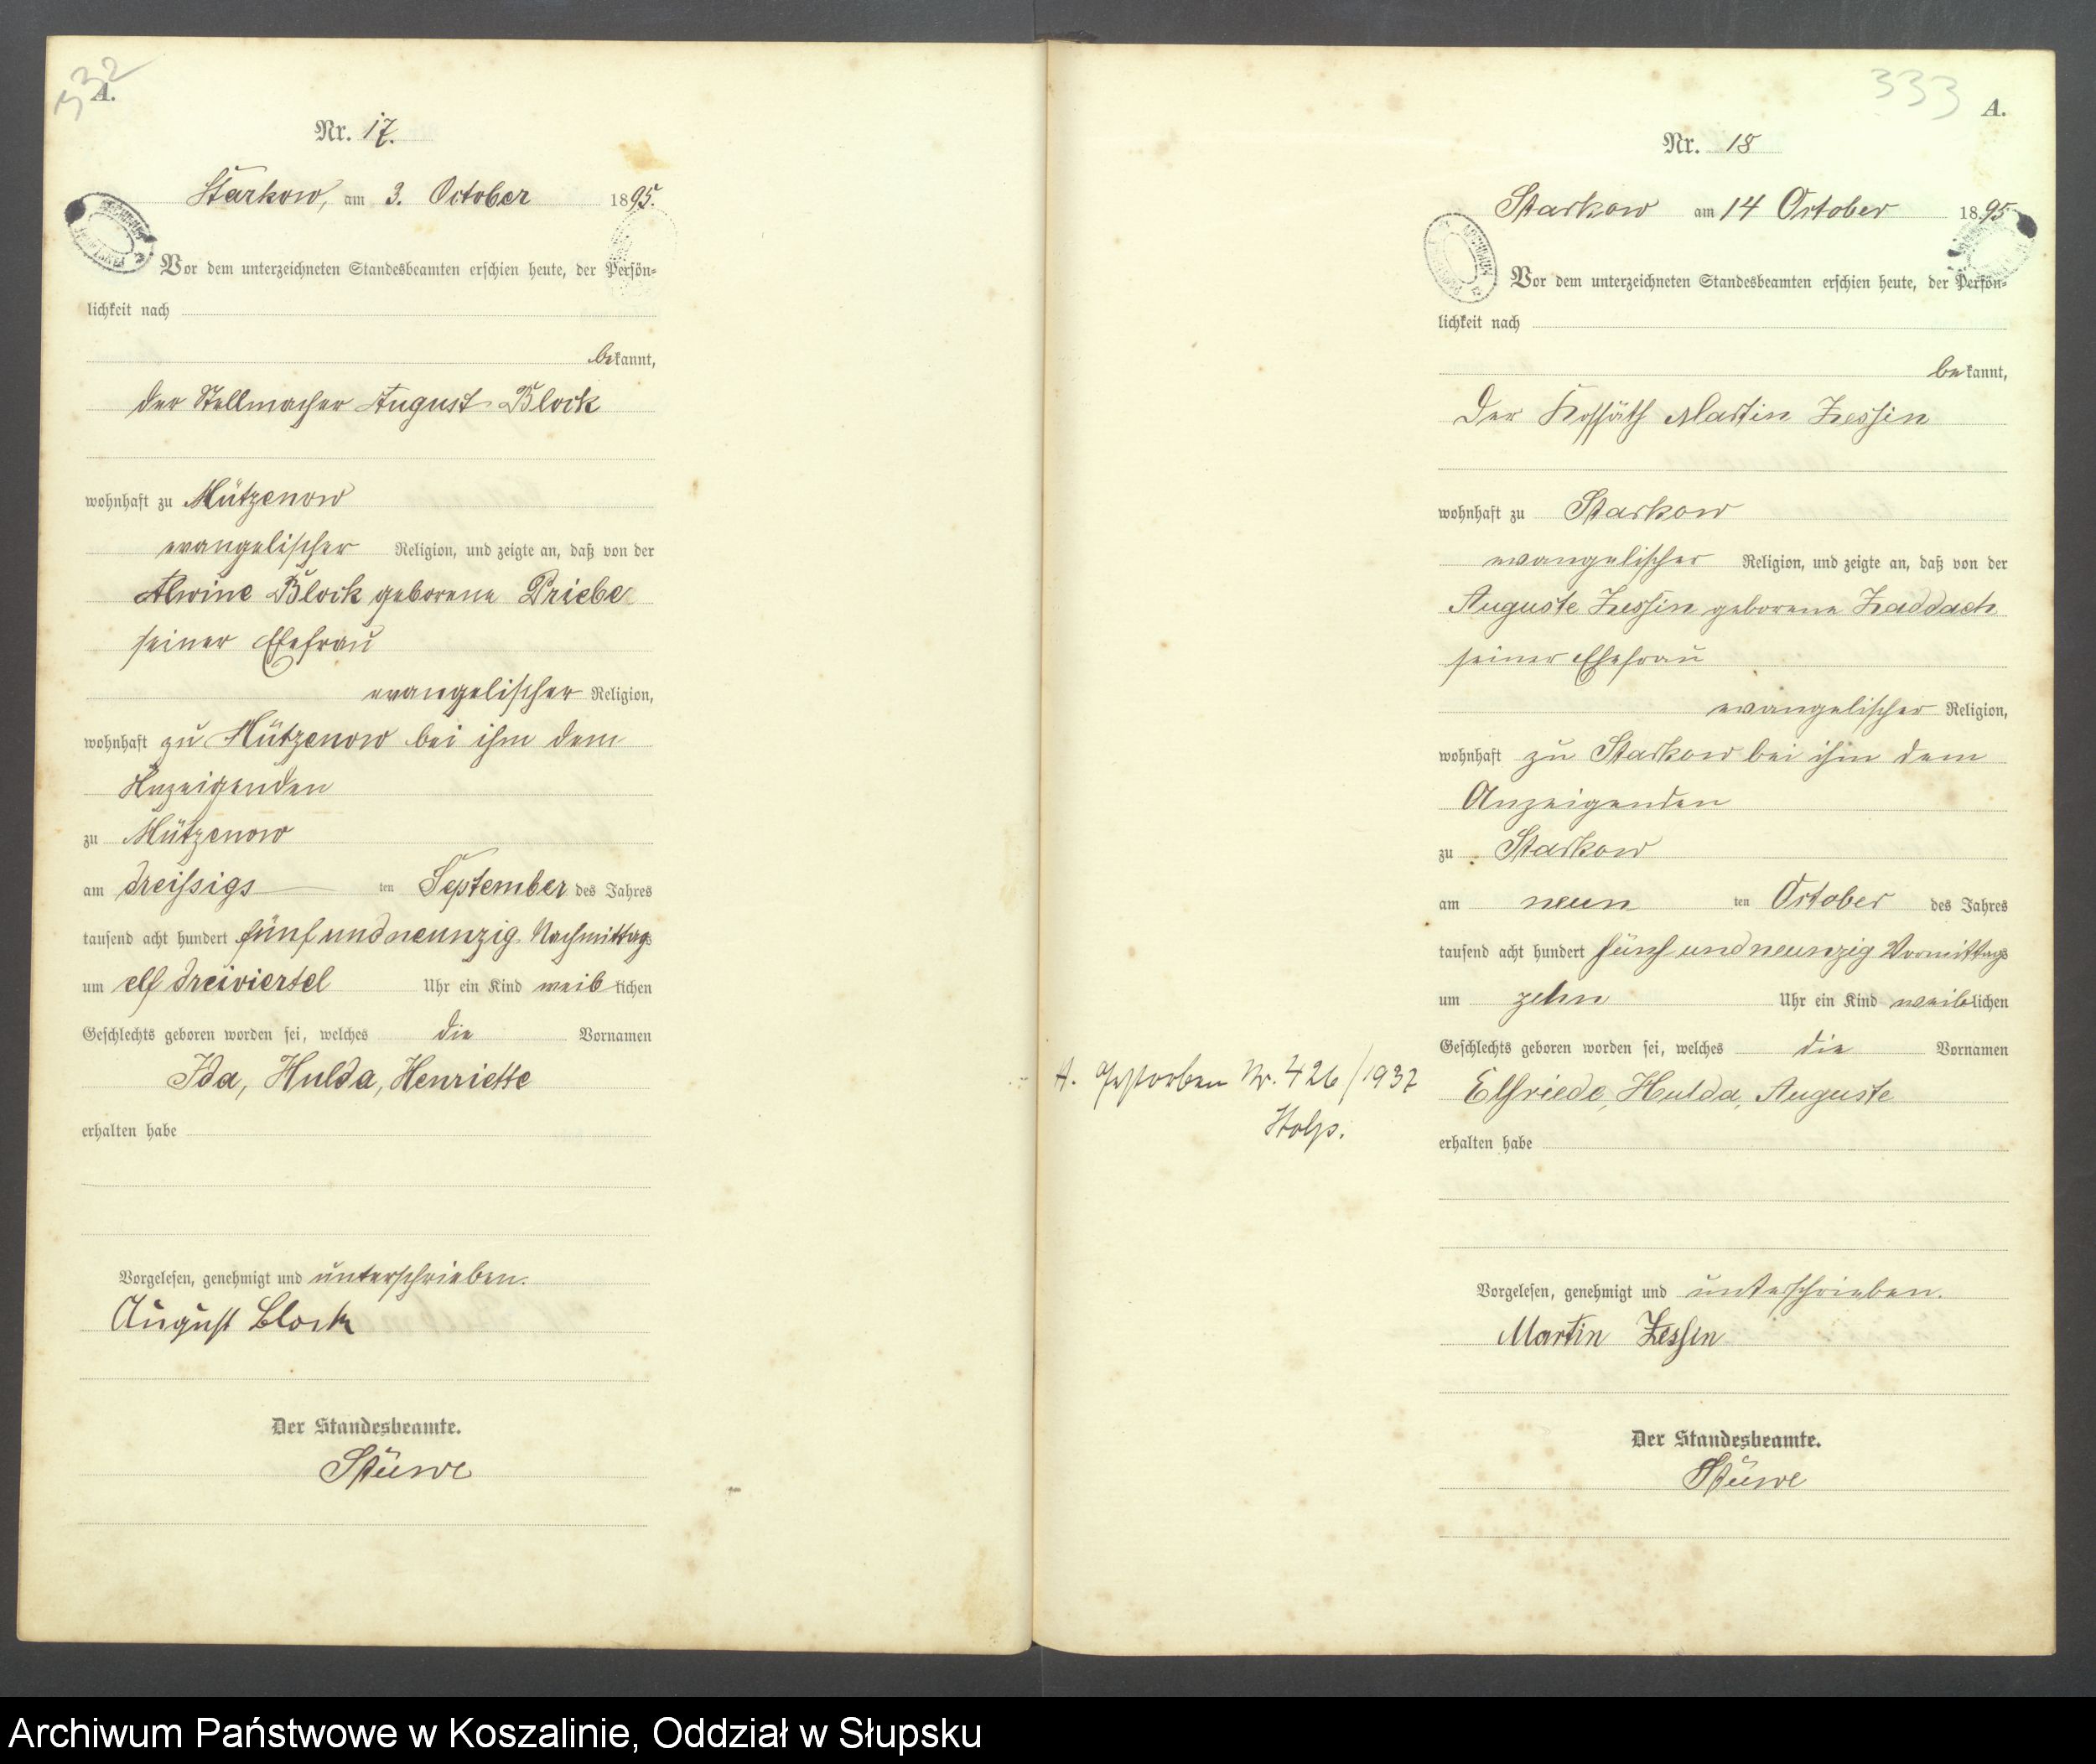 332
A.
Nr. 17.
Starkow, am 3. October 1895.
Vor dem unterzeichneten Standesbeamten erschien heute, der Persön-
lichkeit nach
bekannt,
der Stellmacher August Block
wohnhaft zu Mützenow
evangelischer Religion, und zeigte an, daß von der
Alwine Block geborene Priebe
seiner Ehefrau
evangelischer Religion,
wohnhaft zu Mützenow bei ihm dem
Anzeigenden
zu Mützenow
am dreißigs ten September des Jahres
tausend acht hundert fünf und neunzig Nachmittags
um elf dreiviertel Uhr ein Kind weiblichen
Geschlechts geboren worden sei, welches die Vornamen
Ida, Hulda, Henriette
erhalten habe
Vorgelesen, genehmigt und unterschrieben.
August Block
Der Standesbeamte.
Stüwe
333
A.
Nr. 18
Starkow am 14 October 1895
Vor dem unterzeichneten Standesbeamten erschien heute, der Persön-
lichkeit nach
bekannt,
Der Kossäth Martin Zessin
wohnhaft zu Starkow
evangelischer Religion, und zeigte an, daß von der
Auguste Zessin geborene Zaddach
seiner Ehefrau
evangelischer Religion,
wohnhaft zu Starkow bei ihm dem
Anzeigenden
zu Starkow
am neun ten October des Jahres
tausend acht hundert fünf und neunzig Vormittags
um zehn Uhr ein Kind weiblichen
Geschlechts geboren worden sei, welches die Vornamen
Elfriede, Hulda, Auguste
erhalten habe
Gestorben Nr. 426/1937
Stolp.
Vorgelesen, genehmigt und unterschrieben.
Martin Zessin
Der Standesbeamte.
Stüwe
Archiwum Państwowe w Koszalinie, Oddział w Słupsku